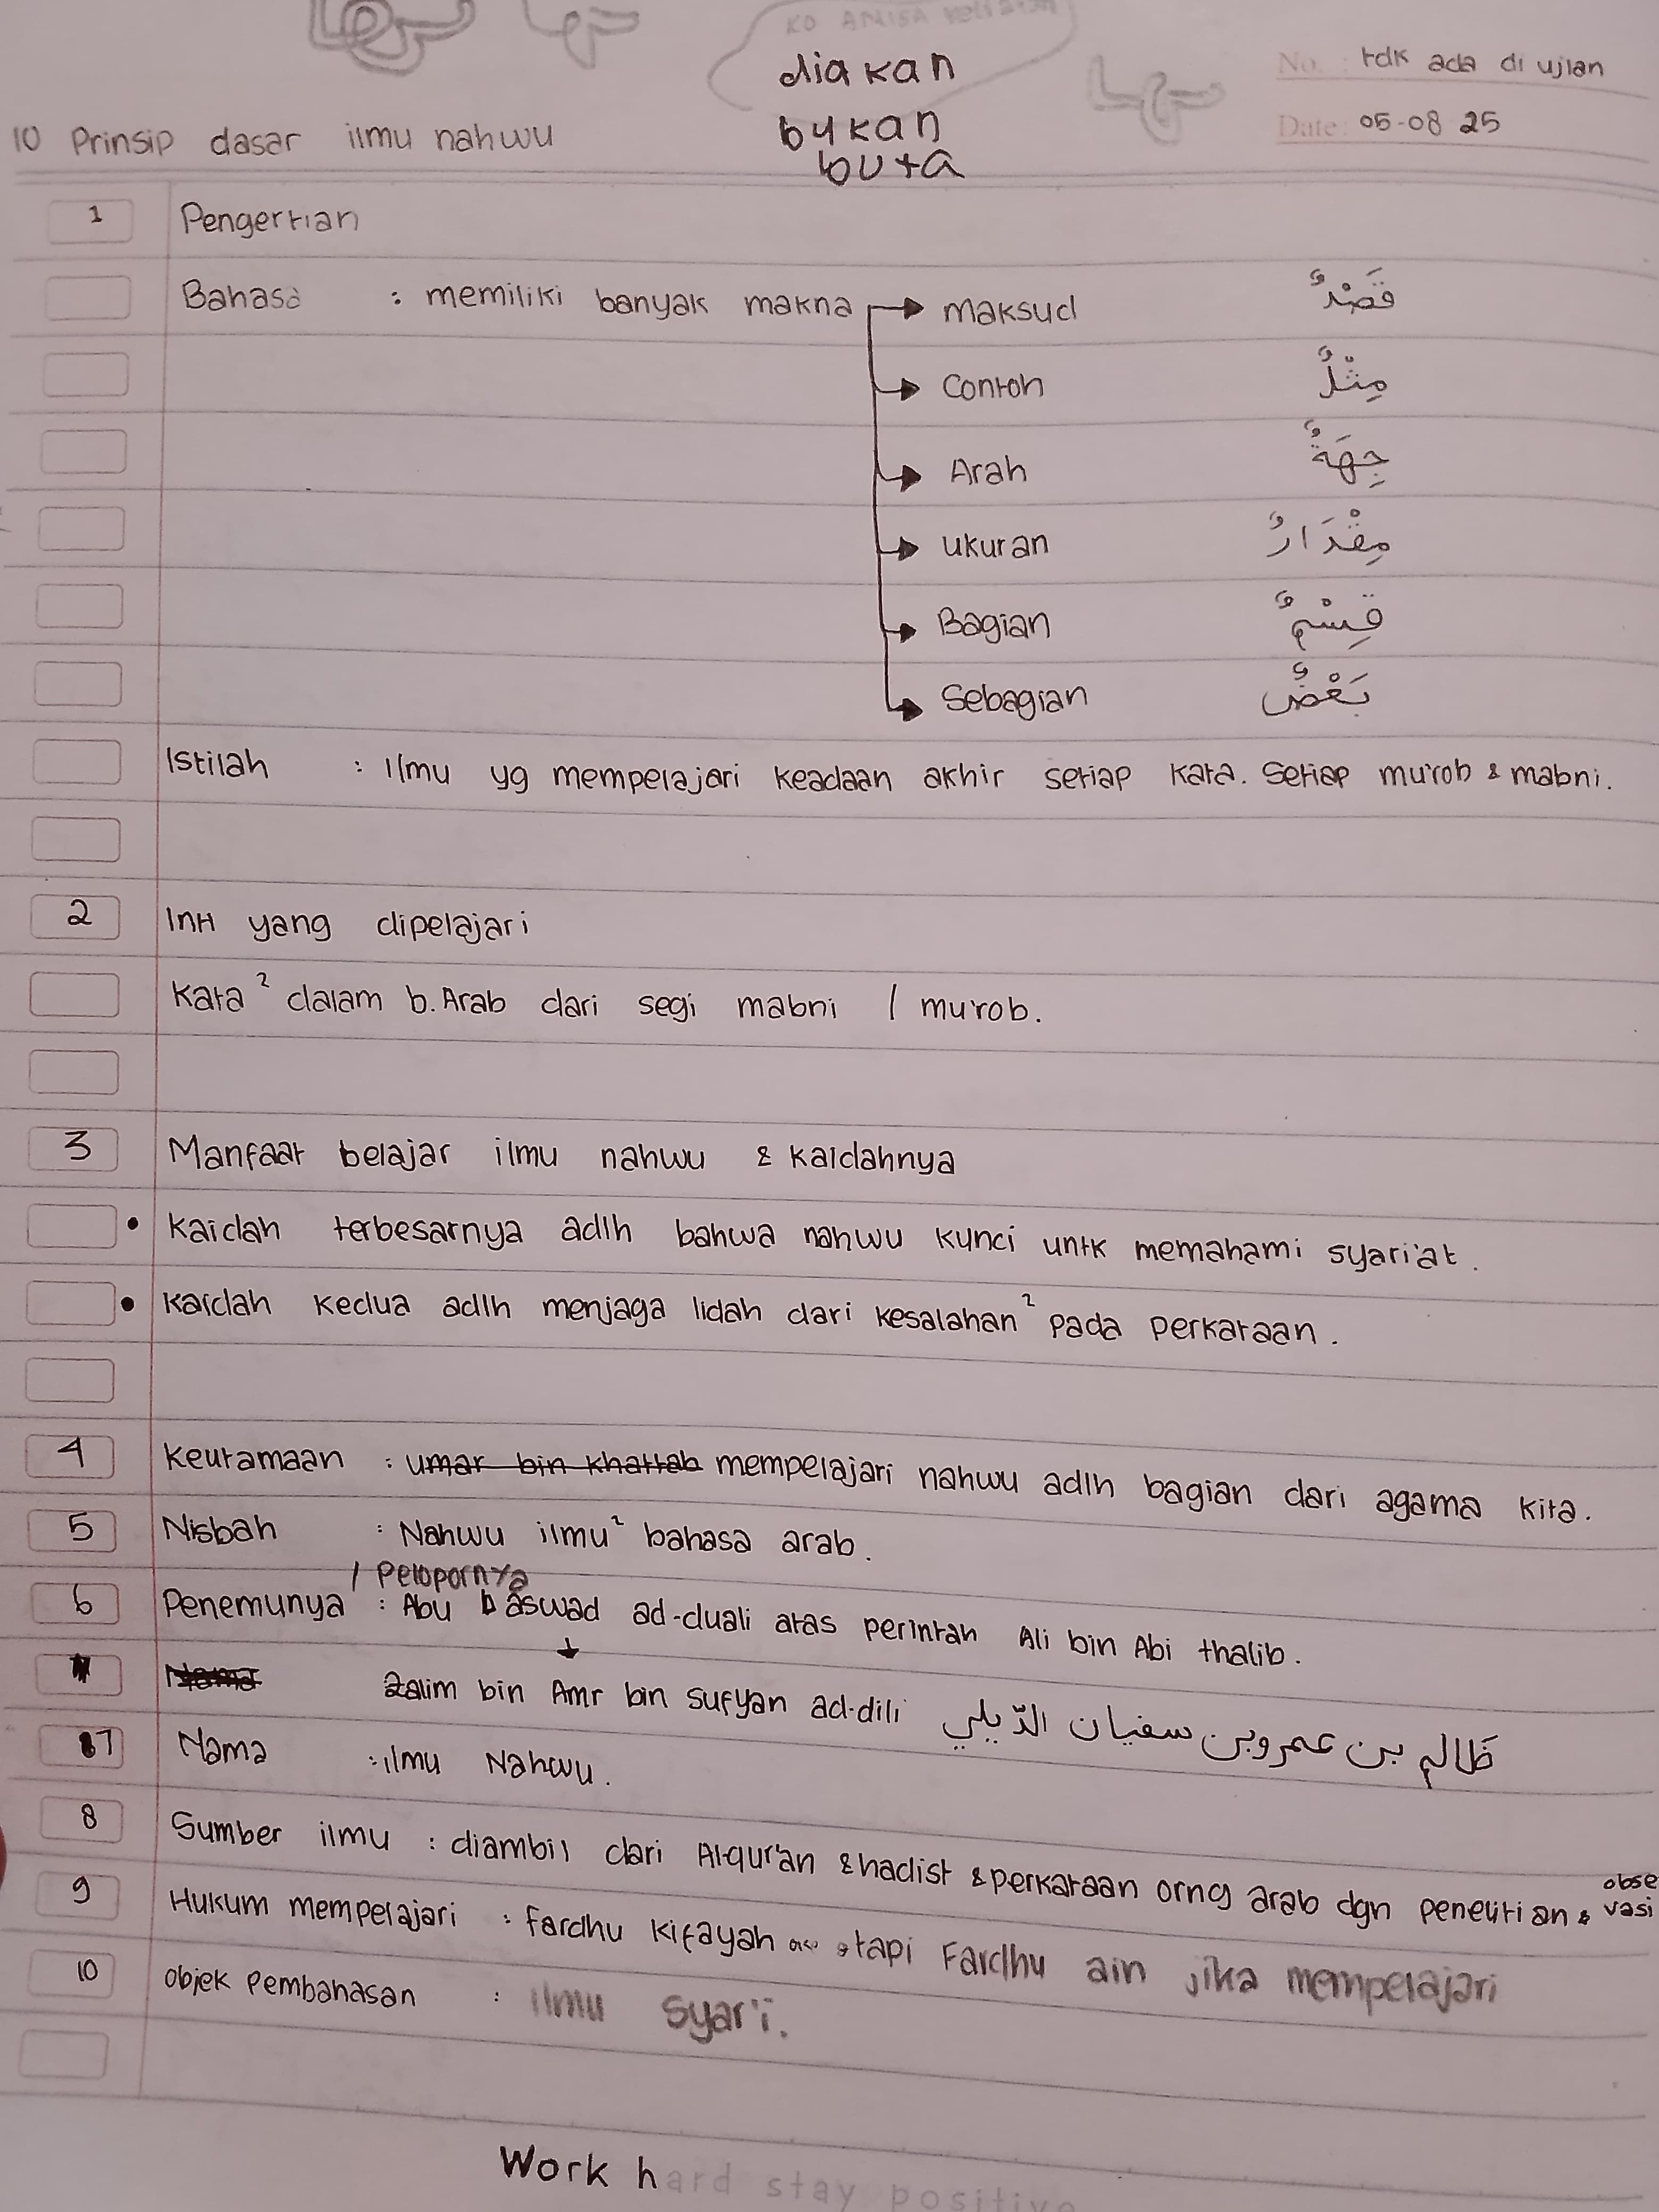 KO ANISA
diakan
bukan
buta
No. : tdk ada di ujian
Date: 05-08 25
10 Prinsip dasar ilmu nahwu
1 Pengertian
Bahasa : memiliki banyak makna → maksud قَصْدٌ
→ Contoh مِثْلٌ
→ Arah جِهَةٌ
→ ukuran مِقْدَارٌ
→ Bagian قِسْمٌ
→ Sebagian بَعْضٌ
Istilah : Ilmu yg mempelajari keadaan akhir setiap kata. Setiap mu'rob & mabni.
2 Inti yang dipelajari
Kata² dalam b. Arab dari segi mabni / mu'rob.
3 Manfaat belajar ilmu nahwu & kaidahnya
• Kaidah terbesarnya adlh bahwa nahwu kunci untk memahami syari'at.
• Kaidah kedua adlh menjaga lidah dari kesalahan² pada perkataan.
4 Keutamaan : umar bin khattab mempelajari nahwu adlh bagian dari agama kita.
5 Nisbah : Nahwu ilmu² bahasa arab.
/ Pelopornya
6 Penemunya : Abu b aswad ad-duali atas perintah Ali bin Abi thalib.
↓
Nama Zalim bin Amr bin sufyan ad-dili ظَالم بن عمرو بن سفيان الدّيلي
7 Nama : ilmu Nahwu.
8 Sumber ilmu : diambil dari Al-qur'an & hadist & perkataan orng arab dgn penelitian & obse
vasi
9 Hukum mempelajari : fardhu kifayah tapi Fardhu ain jika mempelajari
10 objek Pembahasan : ilmu syar'i.
Work hard stay positive